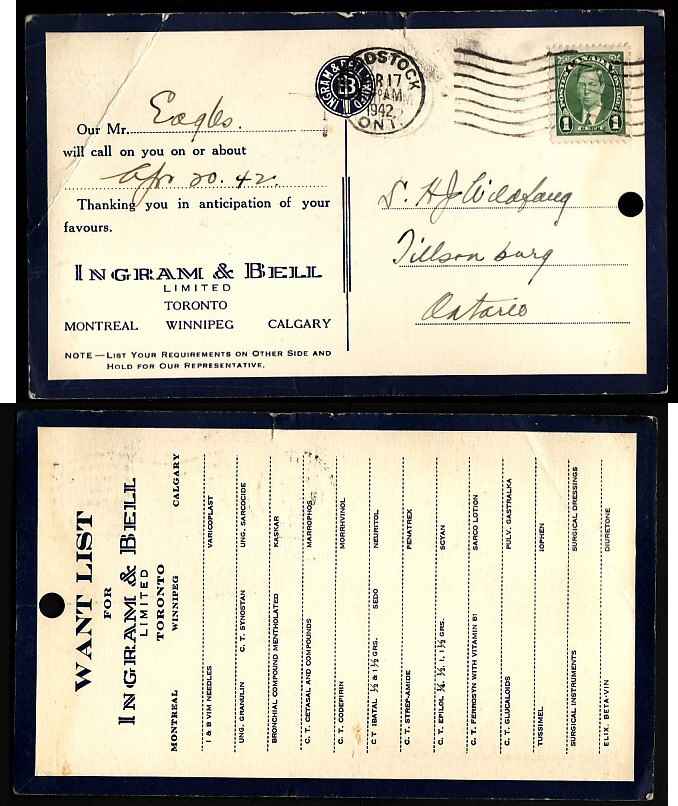 Our Mr. Eagles.
will call on you on or about
Apr 20. 42.
Thanking you in anticipation of your
favours.
INGRAM & BELL
LIMITED
TORONTO
MONTREAL WINNIPEG CALGARY
NOTE—LIST YOUR REQUIREMENTS ON OTHER SIDE AND
HOLD FOR OUR REPRESENTATIVE.
INGRAM & BELL LIMITED
IB
DSTOCK
R 17
AM
1942
ONT.
POSTES CANADA POSTAGE
1 1
H J Wildfang
Tillsonburg
Ontario
WANT LIST
FOR
INGRAM & BELL
LIMITED
TORONTO
MONTREAL WINNIPEG CALGARY
I & B VIM NEEDLES VARICOPLAST
UNG. GRANULIN C. T. SYNOSTAN UNG. SARCOCIDE
BRONCHIAL COMPOUND MENTHOLATED KASKAR
C. T. CETASAL AND COMPOUNDS MARROPHOS
C. T. CODEPIRIN MORRHVINOL
C T IBATAL ½ & 1½ GRS. SEDO NEURITOL
C. T. STREP-AMIDE FENATREX
C. T. EPILOL ¼, ½, 1, 1½ GRS. SCYAN
C. T. FERROSYN WITH VITAMIN B1 SARCO LOTION
C. T. GLUCALOIDS PULV. GASTRALKA
TUSSIMEL IOPHEN
SURGICAL INSTRUMENTS SURGICAL DRESSINGS
ELIX. BETA-VIN DIURETONE